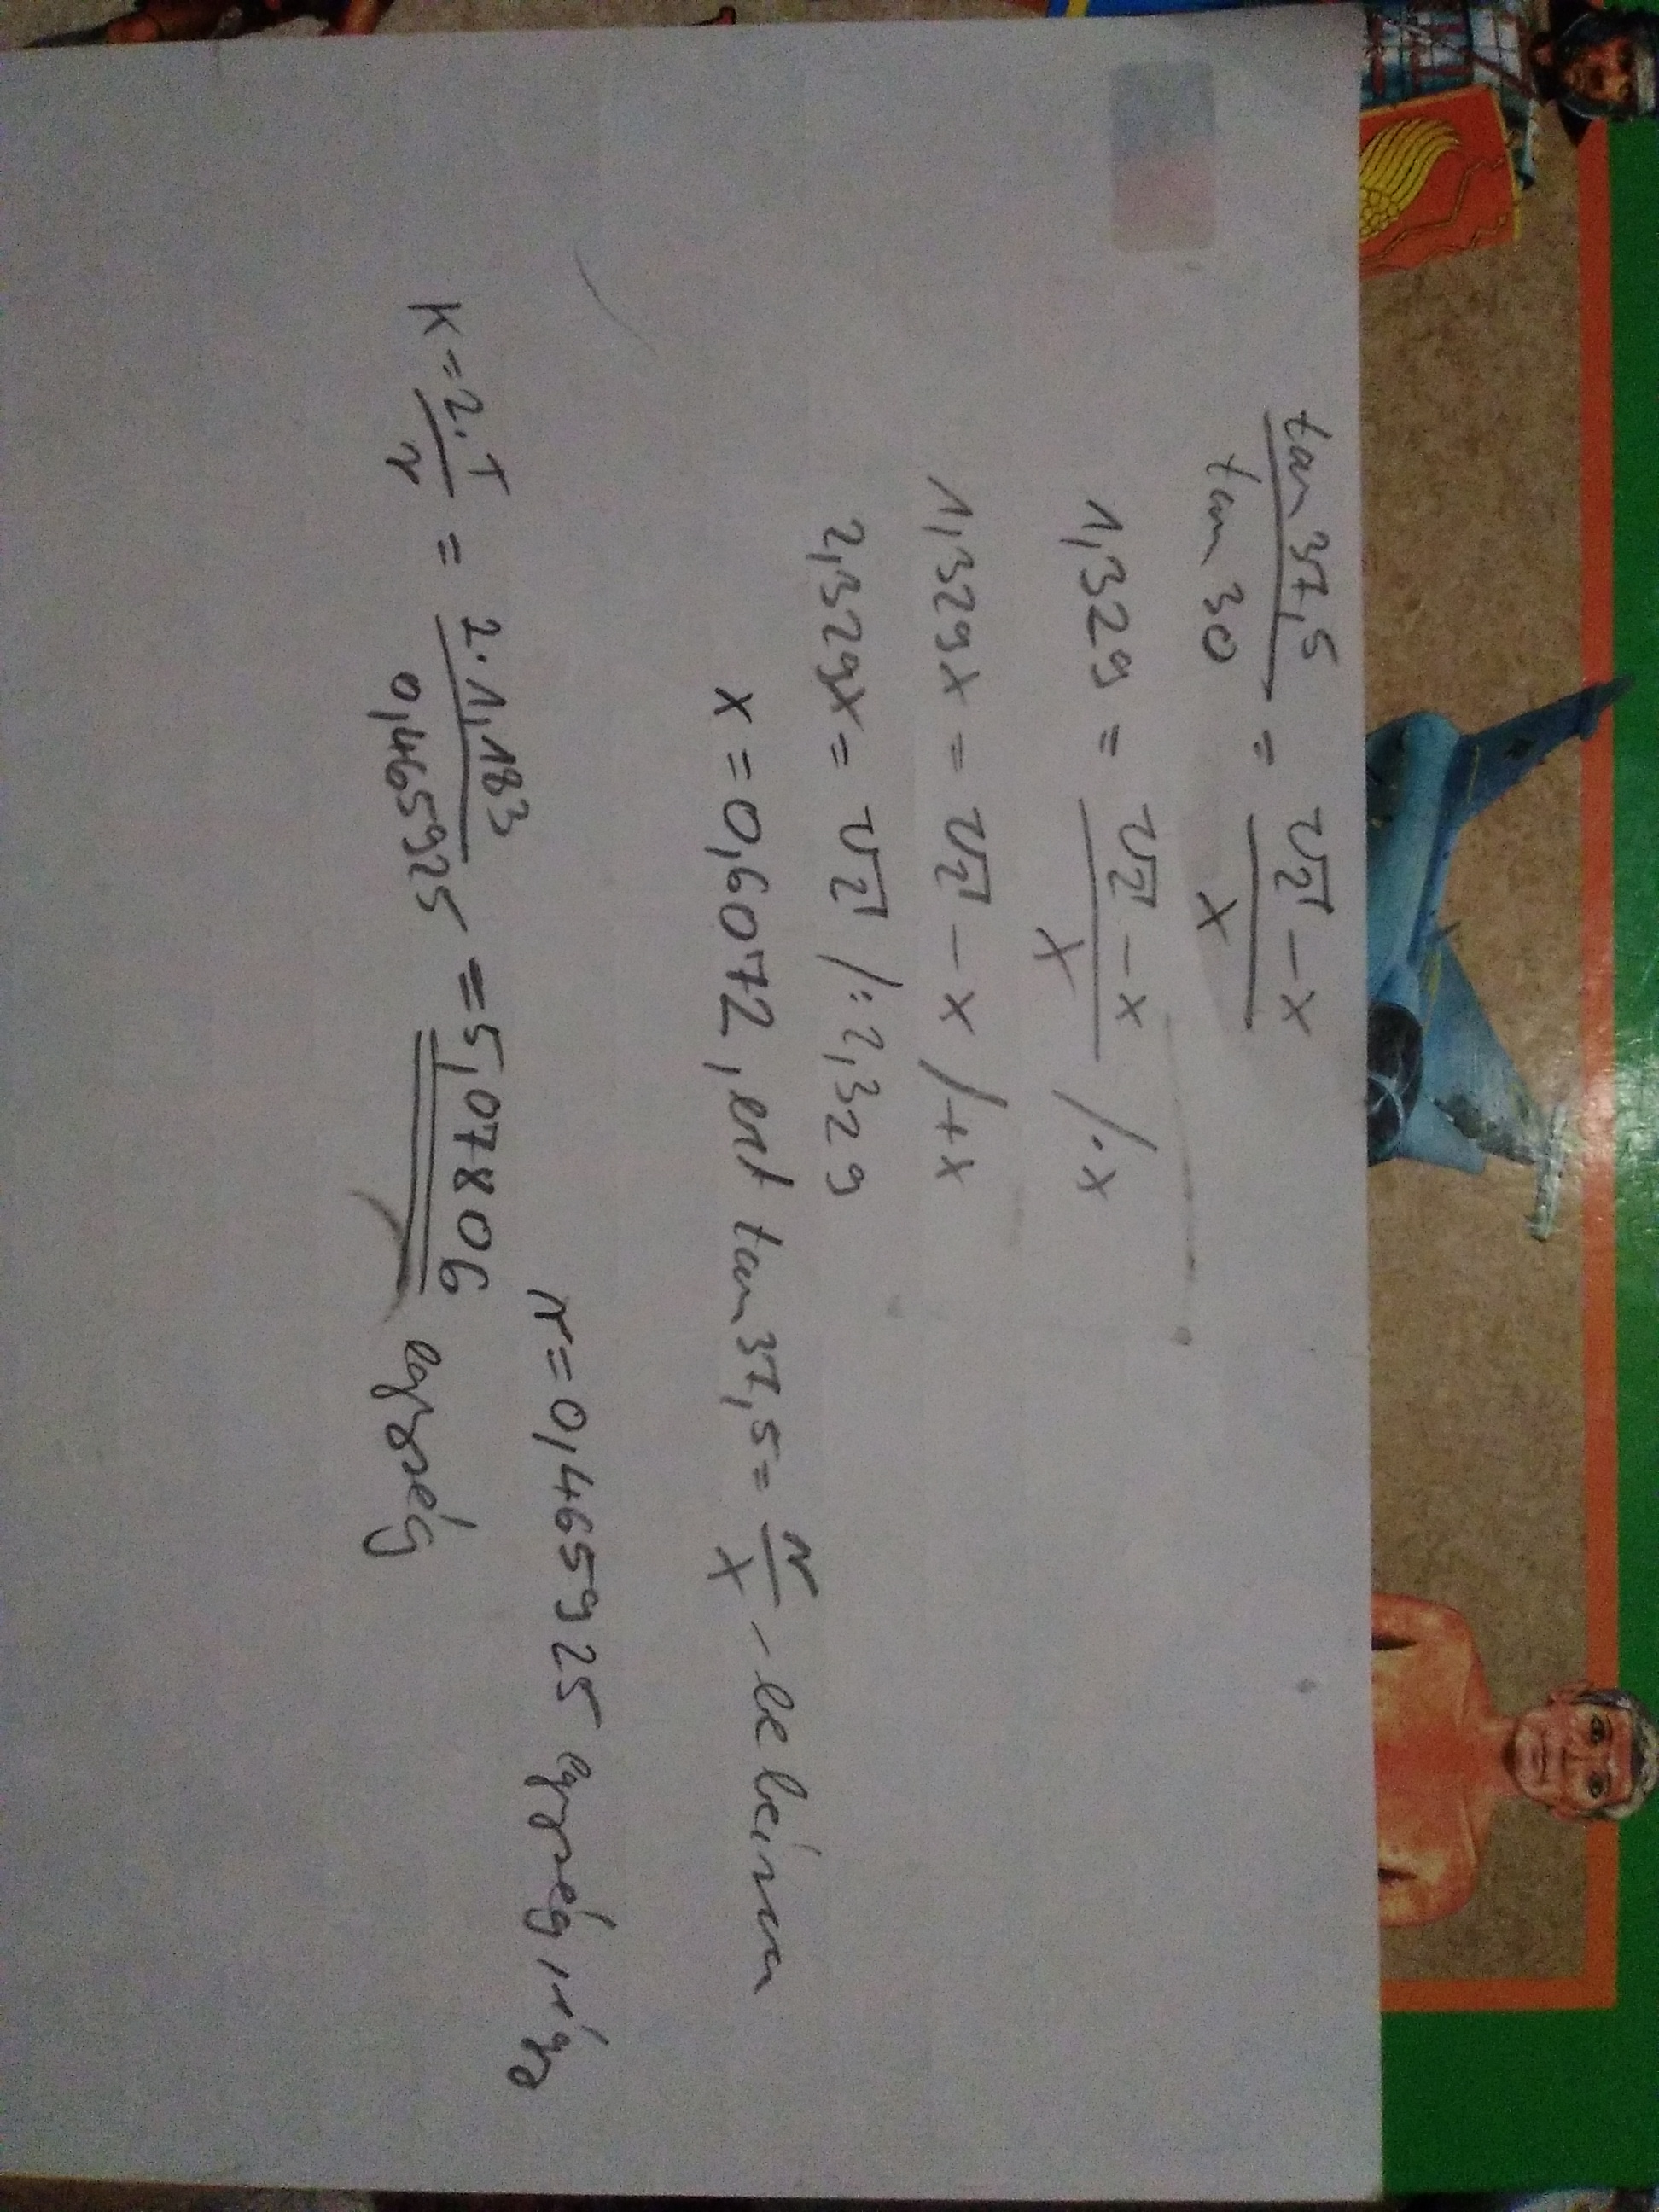 tan 37,5 / tan 30 = √2 - x / x
1,329 = √2 - x / x /·x
1,329x = √2 - x /+x
2,329x = √2 /:2,329
x = 0,6072, ezt tan 37,5 = r/x -be beírva
r = 0,465925 egység sugár
K = 2·T / r = 2·1,183 / 0,465925 = 5,07806 egység